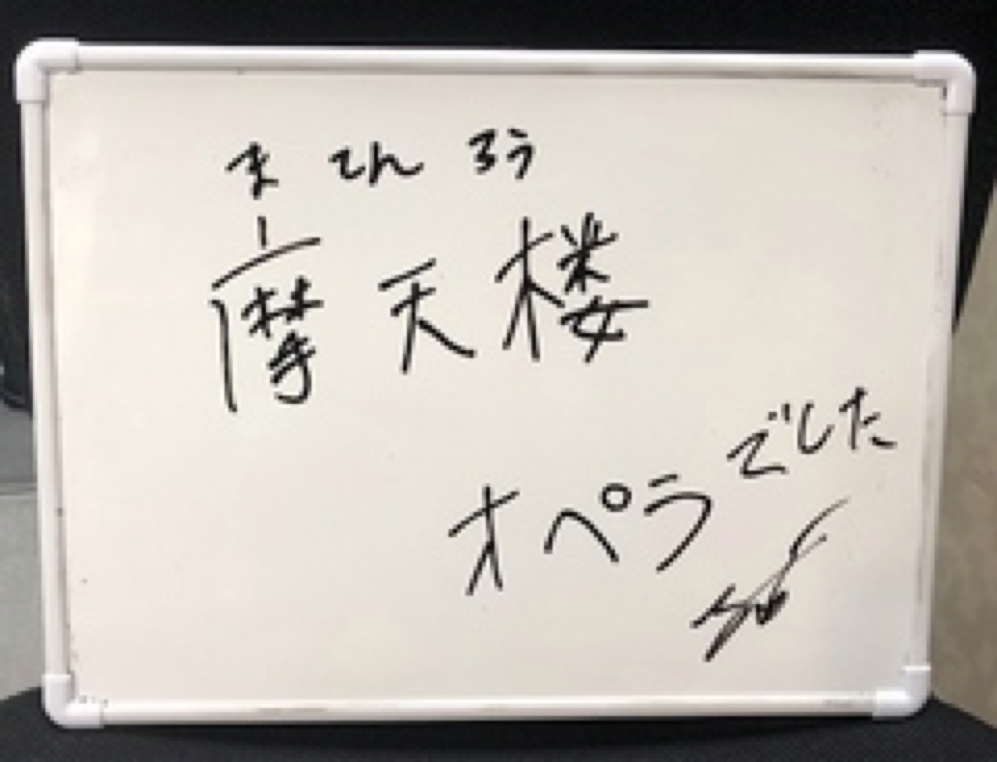 まてんろう
摩天楼
オペラでした